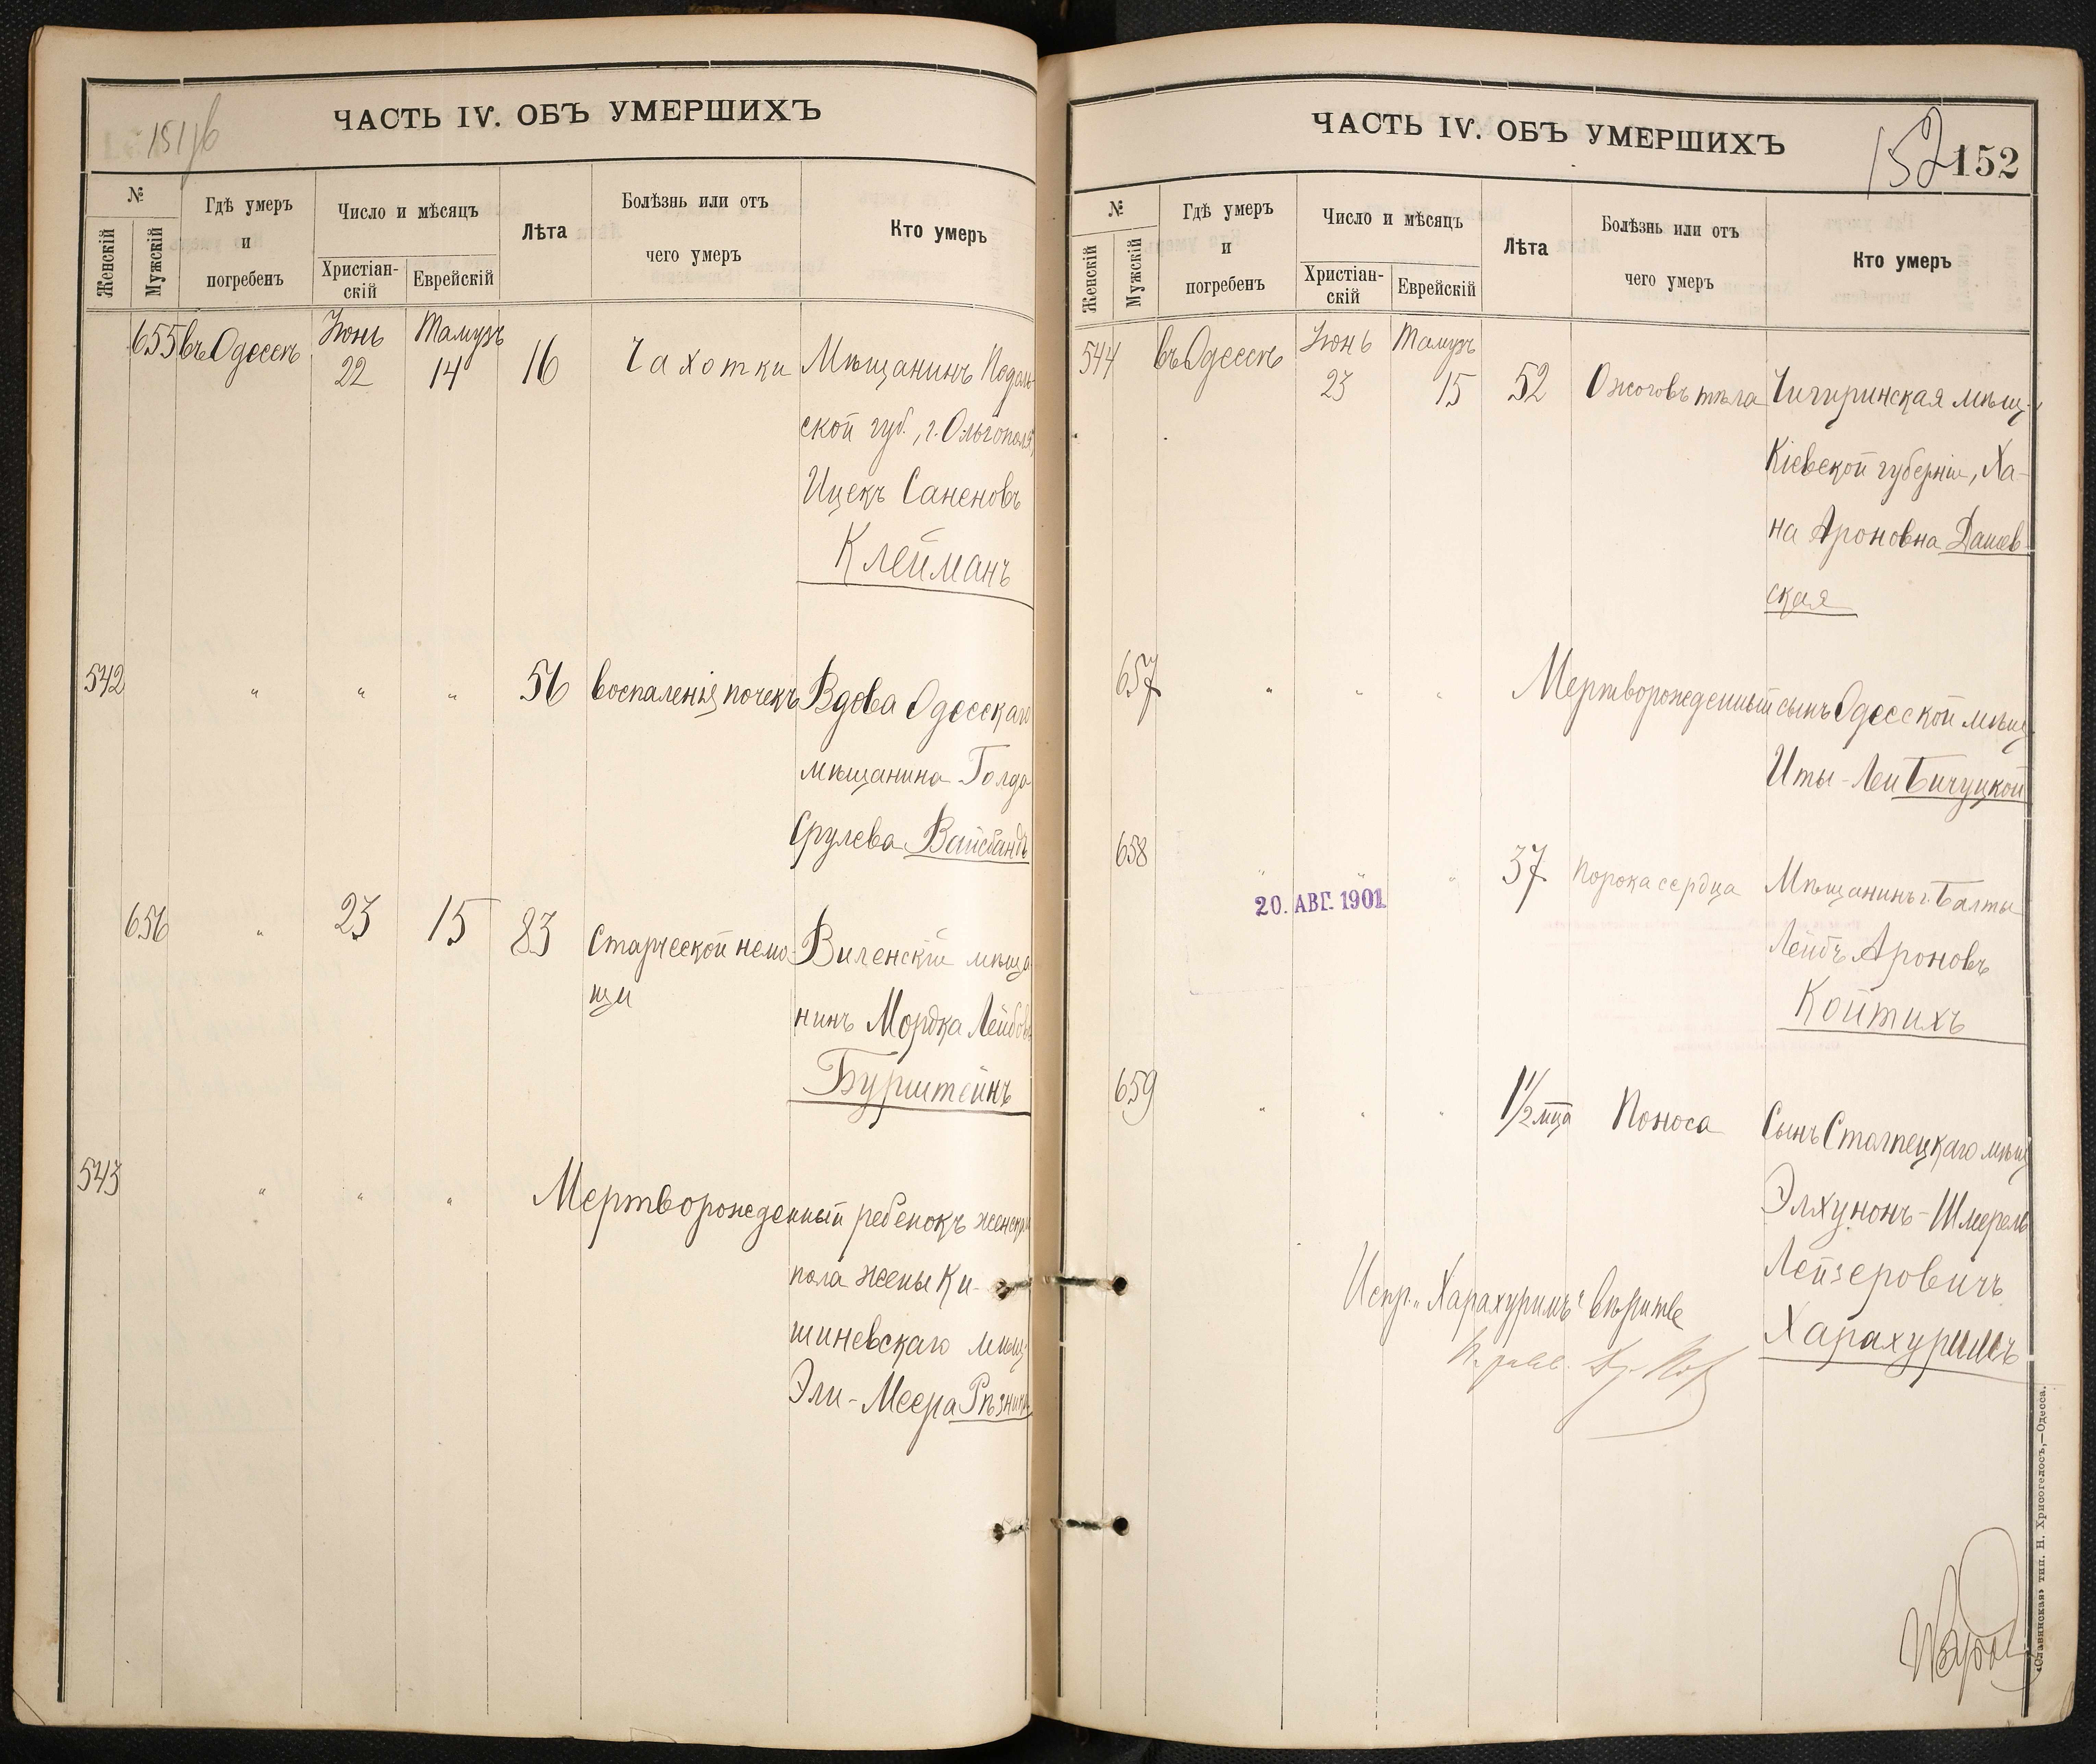 151 об
ЧАСТЬ IV. ОБЪ УМЕРШИХЪ
№
Женскій
Мужскій
Гдѣ умеръ
и
погребенъ
Число и мѣсяцъ
Христіан-
скій
Еврейскій
Лѣта
Болѣзнь или отъ
чего умеръ
Кто умеръ
655 въ Одессѣ Іюнь 22 Тамузъ 14 16 Чахотки Мѣщанинъ Подоль-
ской губ., г. Ольгополя,
Ицекъ Саненовъ
Клейманъ
542 " " " 56 воспаленія почекъ Вдова Одесскаго
мѣщанина Голда
Срулева Вайсбандъ
656 " 23 15 83 Старческой немо- Виленскій мѣща-
щи нинъ Мордка Лейбовъ
Бурштейнъ
543 " " " Мертворожденный ребенокъ женскаго
пола жены Ки-
шиневскаго мѣщ.
Эли-Меера Рѣзника
ЧАСТЬ IV. ОБЪ УМЕРШИХЪ
152 152
№
Женскій
Мужскій
Гдѣ умеръ
и
погребенъ
Число и мѣсяцъ
Христіан-
скій
Еврейскій
Лѣта
Болѣзнь или отъ
чего умеръ
Кто умеръ
544 въ Одессѣ Іюнь 23 Тамузъ 15 52 Ожоговъ тѣла Чигиринская мѣщ.
Кіевской губерніи, Ха-
на Ароновна Дашев-
ская
657 " " " Мертворожденный сынъ Одесской мѣщ.
Иты-Леи Бичуцкой
658 " " " 37 Порока сердца Мѣщанинъ г. Балты
20. АВГ. 1901.
Лейбъ Ароновъ
Койтихъ
659 " " " 1 1/2 мца Поноса Сынъ Столпецкаго мѣщ.
Элхунонъ-Шмерель
Лейзеровичъ
Харахуримъ
Испр. "Харахуримъ" вѣрить
«Славянская» тип. Н. Хрисогелосъ,—Одесса.